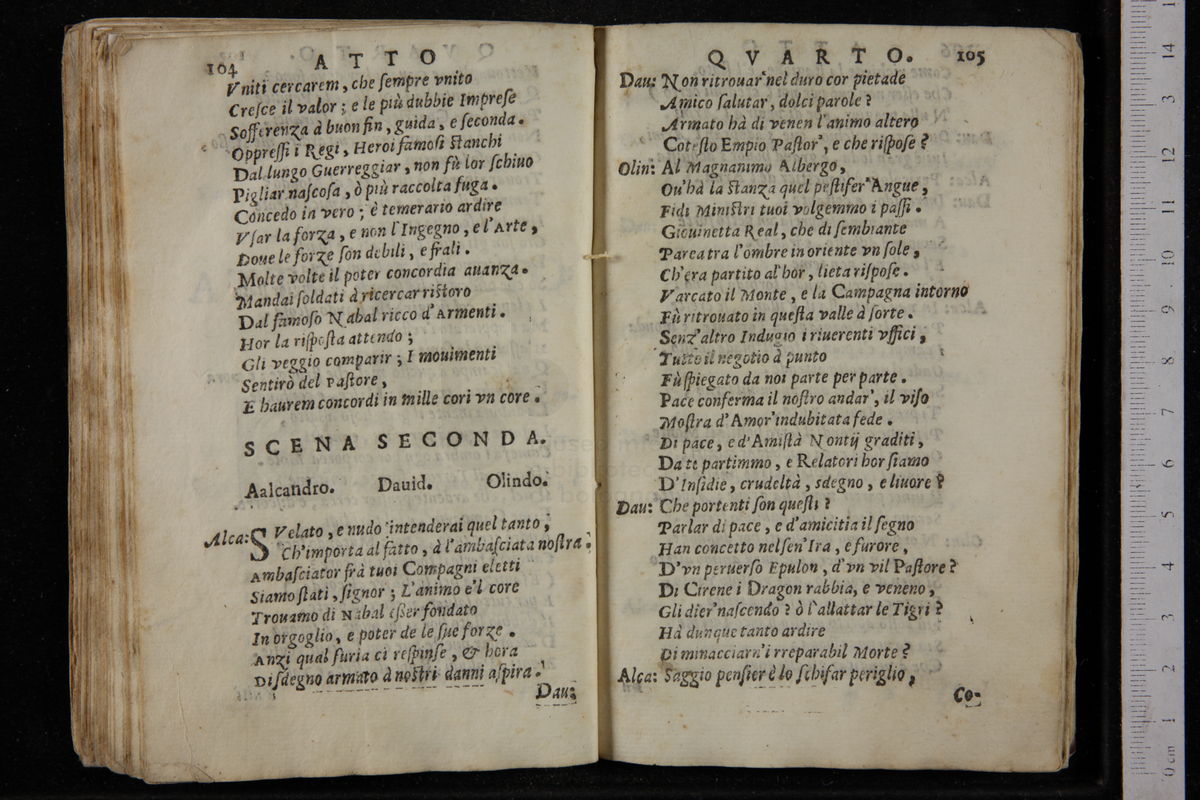 104 ATTO
Vniti cercarem, che ſempre vnito
Creſce il valor; e le più dubbie Impreſe
Sofferenza à buon fin, guida, e ſeconda.
Oppreſſi i Regi, Heroi famoſi ſtanchi
Dal lungo Guerreggiar, non fù lor ſchiuo
Pigliar naſcoſa, ò più raccolta fuga.
Concedo in vero; è temerario ardire
Vſar la forza, e non l'Ingegno, e l'Arte,
Doue le forze ſon debili, e frali.
Molte volte il poter concordia auanza.
Mandai ſoldati à ricercar riſtoro
Dal famoſo Nabal ricco d'Armenti.
Hor la riſpeſta attendo;
Gli veggio comparir; I mouimenti
Sentirò del Paſtore,
E haurem concordi in mille cori vn core.
SCENA SECONDA.
Aalcandro. Dauid. Olindo.
Alca: SVelato, e nudo intenderai quel tanto,
Ch'importa al fatto, à l'ambaſciata noſtra:
Ambaſciator frà tuoi Compagni eletti
Siamo ſtati, ſignor; L'animo e'l core
Trouamo di Nabal eſſer fondato
In orgoglio, e poter de le ſue forze.
Anzi qual furia ci reſpinſe, & hora
Di ſdegno armato à noſtri danni aſpira.
Dau:
QVARTO. 105
Dau: Non ritrouar' nel duro cor pietade
Amico ſalutar, dolci parole?
Armato hà di venen l'animo altero
Coteſto Empio Paſtor', e che riſpoſe?
Olin: Al Magnanimo Albergo,
Ou'hà la ſtanza quel peſtifer' Angue,
Fidi Miniſtri tuoi volgemmo i paſſi.
Giouinetta Real, che di ſembiante
Parea tra l'ombre in oriente vn ſole,
Ch'era partito al'hor, lieta riſpoſe.
Varcato il Monte, e la Campagna intorno
Fù ritrouato in queſta valle à ſorte.
Senz'altro Indugio i riuerenti vffici,
Tutto il negotio à punto
Fù ſpiegato da noi parte per parte.
Pace conferma il noſtro andar', il viſo
Moſtra d'Amor' indubitata fede.
Di pace, e d'Amiſtà Nontij graditi,
Da te partimmo, e Relatori hor ſiamo
D'Inſidie, crudeltà, sdegno, e liuore?
Dau: Che portenti ſon queſti?
Parlar di pace, e d'amicitia il ſegno
Han concetto nel ſen' Ira, e furore,
D'vn peruerſo Epulon, d'vn vil Paſtore?
Di Cirene i Dragon rabbia, e veneno,
Gli dier' naſcendo? ò l'allattar le Tigri?
Hà dunque tanto ardire
Di minacciarn' irreparabil Morte?
Alca: Saggio penſier è lo ſchifar periglio,
Co-